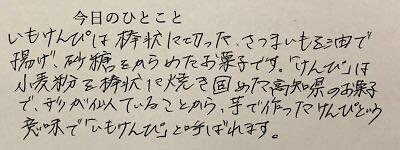 今日のひとこと
いもけんぴは棒状に切った、さつまいもを油で
揚げ、砂糖をからめたお菓子です。「けんぴ」は
小麦粉を棒状に焼き固めた高知県のお菓子
で、形が似ていることから、芋で作ったけんぴという
意味で「いもけんぴ」と呼ばれます。